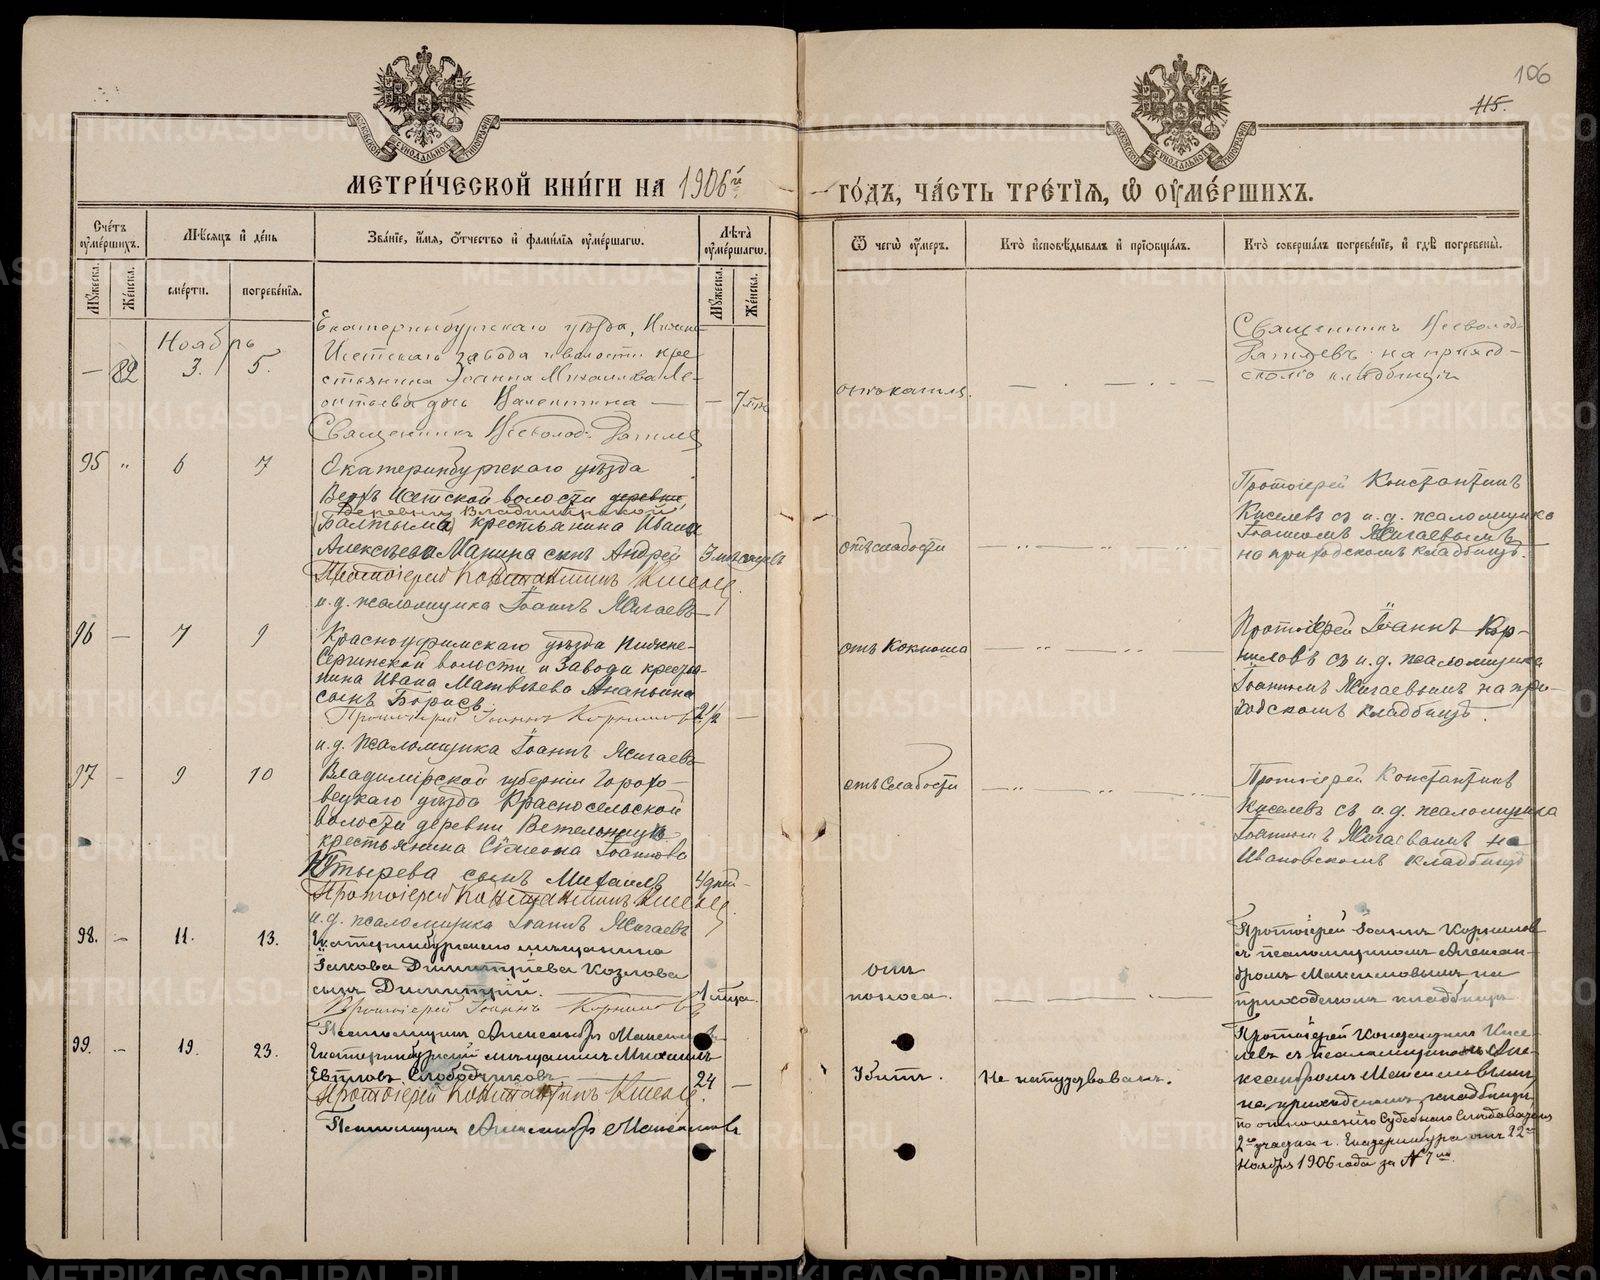 106
115.
МОСКОВСКОЙ СѴНОДАЛЬНОЙ ТИПОГРАФІИ
МОСКОВСКОЙ СѴНОДАЛЬНОЙ ТИПОГРАФІИ
МЕТРИ́ЧЕСКОЙ КНИ́ГИ НА 1906й
ГО́ДЪ, ЧА́СТЬ ТРЕ́ТІѦ, Ѡ ОУМЕ́РШИХЪ.
Счетъ оумершихъ.
Мѣсяцъ и день
Званіе, имя, отчество и фамилія оумершагѡ.
Лѣта оумершагѡ.
Ѿ чегѡ оумеръ.
Кто исповѣдывалъ и пріобщалъ.
Кто совершалъ погребеніе, и гдѣ погребены.
Мужеска.
Женска.
смерти.
погребенія.
Мужеска.
Женска.
Ноябрь
— 82 3. 5.
Екатеринбургскаго уѣзда, Нижне-
Исетскаго завода и волости кре-
стьянина Іоанна Михаилова Ле-
онтьева дочь Валентина — — 7
Священникъ Всеволодъ
отъ кашля.
Священникъ Всеволодъ
на приход-
скомъ кладбищѣ
95 " 6 7
Екатеринбургскаго уѣзда
Верхъ Исетской волости деревни
Деревни Владимірской
(Балтыма) крестьянина Ивана
Алексѣева Манина сынъ Андрей 3 мѣсяцевъ
Протоіерей Константинъ Киселев
и.д. псаломщика Іоаннъ Жигаевъ
отъ слабости
Протоіерей Константинъ
Киселевъ съ и.д. псаломщика
Іоанномъ Жигаевымъ
на приходскомъ кладбищѣ.
96 — 7 9
Красноуфимскаго уѣзда Нижне-
Сергинской волости и завода крестья-
нина Ивана Матвѣева Ананьина
сынъ Борисъ. 2 1/2 —
Протоіерей Іоаннъ Корниловъ
и.д. псаломщика Іоаннъ Жигаевъ
отъ Коклюша
Протоіерей Іоаннъ Кор-
ниловъ съ и.д. псаломщика
Іоанномъ Жигаевымъ на при-
ходскомъ кладбищѣ.
97 — 9 10
Владимірской губерніи Горохо-
вецкаго уѣзда Красносельской
волости деревни Ветельницъ
крестьянина Сѵмеона Іоаннова
сынъ Михаилъ 4 дней —
Протоіерей Константинъ Киселев
и.д. псаломщика Іоаннъ Жигаевъ
отъ Слабости
Протоіерей Константинъ
Киселевъ съ и.д. псаломщика
Іоанномъ Жигаевымъ на
Ивановскомъ кладбищѣ
98. — 11. 13.
Екатеринбургскаго мѣщанина
Іакова Димитріева Козлова
сынъ Димитрій. 1
Протоіерей Іоаннъ Корниловъ
Псаломщикъ Александръ Максимовъ
отъ
поноса.
Протоіерей Іоаннъ Корнилов
с псаломщикомъ Алексан-
дромъ Максимовымъ на
приходскомъ кладбищѣ
99. — 19. 23.
Екатеринбургскій мѣщанинъ Михаилъ
Слободчиковъ 24 —
Протоіерей Константинъ Киселев.
Псаломщикъ Александръ Максимовъ
Убитъ.
Не напутствованъ.
Протоіерей Константинъ Кисе-
левъ с псаломщикомъ Але-
ксандромъ Максимовымъ
на приходскомъ кладбищѣ,
по отношенію Судебнаго Слѣдователя
2го участка г. Екатеринбурга отъ 22го
Ноября 1906 года за №
METRIKI.GASO-URAL.RU